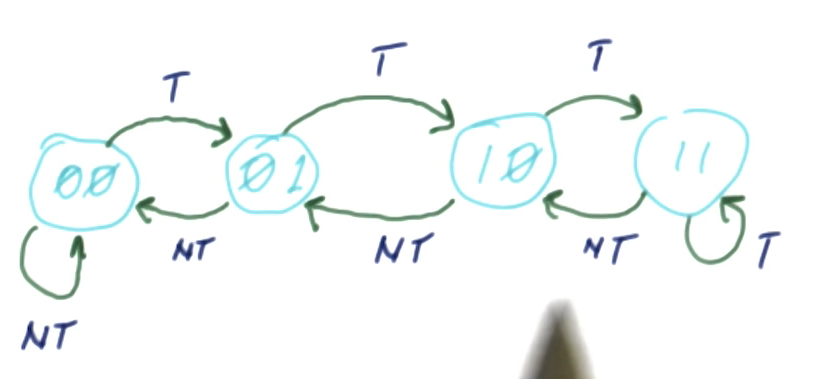 T T T
00 01 10 11
NT NT NT T
NT